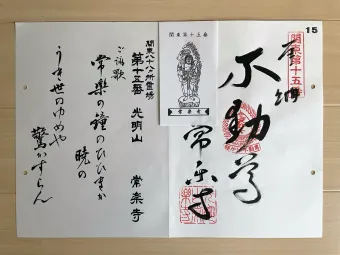 15
奉納
関東第十五番
不動尊
常楽寺
関東第十五番
常楽寺
関東八十八所霊場
第十五番 光明山 常楽寺
ご詠歌
常楽の鐘のひびきか
暁の
うき世のゆめや
驚かすらん